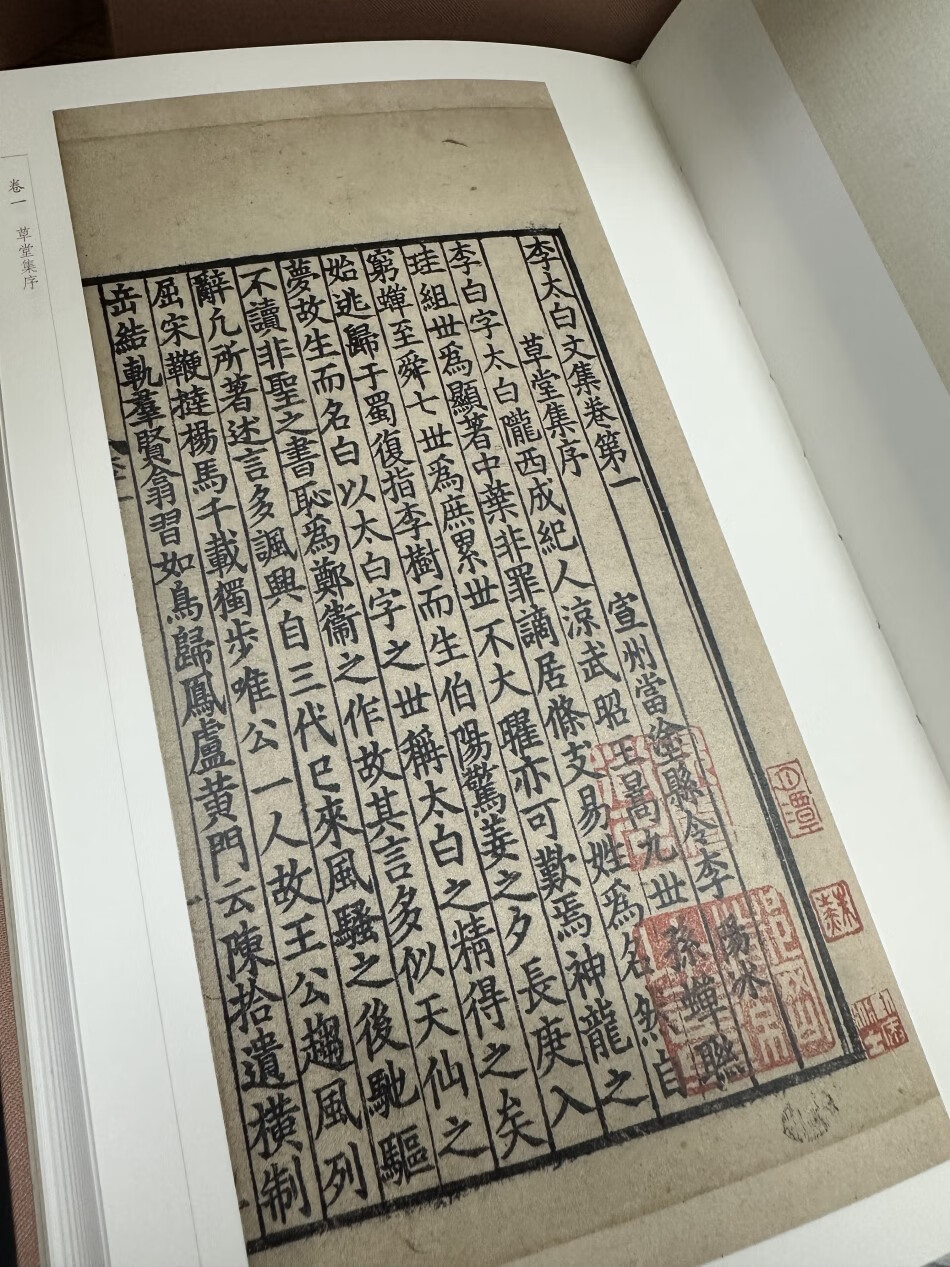 李太白文集卷第一
草堂集序 宣州當塗縣令李陽冰
李白字太白隴西成紀人涼武昭王暠九世孫蟬聯
珪組世爲顯著中葉非罪謫居條支易姓爲名然自
窮蟬至舜七世爲庶累世不大曜亦可歎焉神龍之
始逃歸于蜀復指李樹而生伯陽驚姜之夕長庚入
夢故生而名白以太白字之世稱太白之精得之矣
不讀非聖之書恥爲鄭衞之作故其言多似天仙之
辭凡所著述言多諷興自三代已來風騷之後馳驅
屈宋鞭撻楊馬千載獨步唯公一人故王公趨風列
岳結軌羣賢翕習如鳥歸鳳盧黃門云陳拾遺橫制
卷一 草堂集序